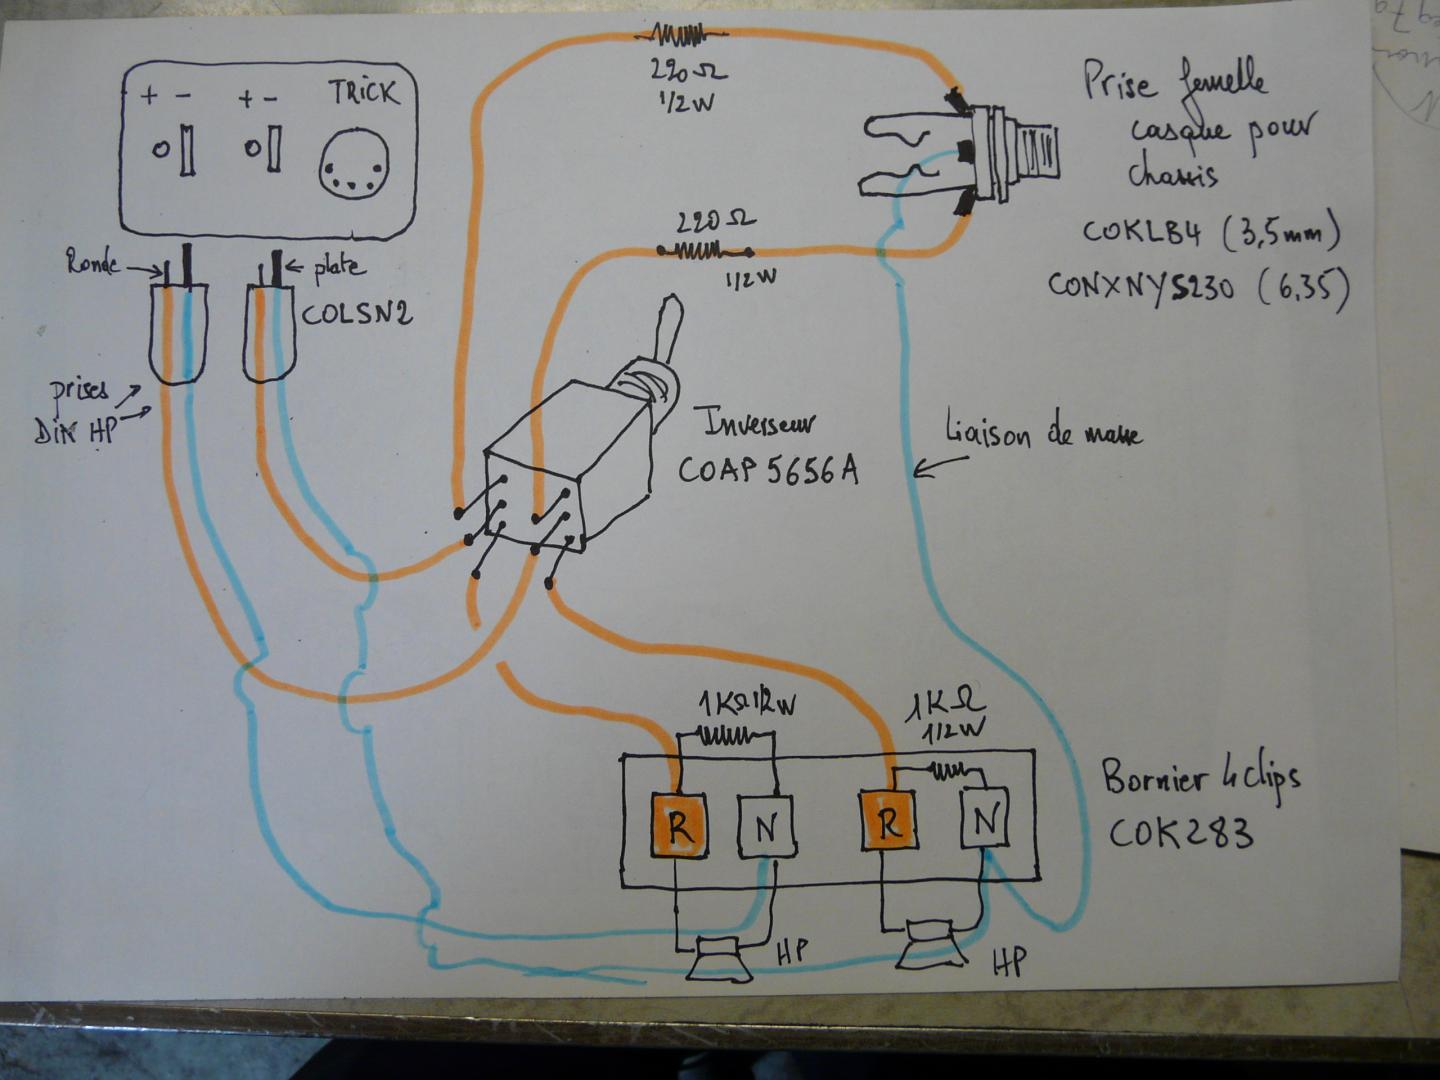 + - + - TRICK
220 Ω
1/2 W
Prise femelle
casque pour
chassis
COKLB4 (3,5mm)
CONXNYS230 (6,35)
220 Ω
1/2 W
Ronde
plate
COLSN2
prises
DIN HP
Inverseur
COAP 5656A
Liaison de masse
1KΩ 1/2 W
1KΩ
1/2 W
R N R N
Bornier 4 clips
COK283
HP
HP